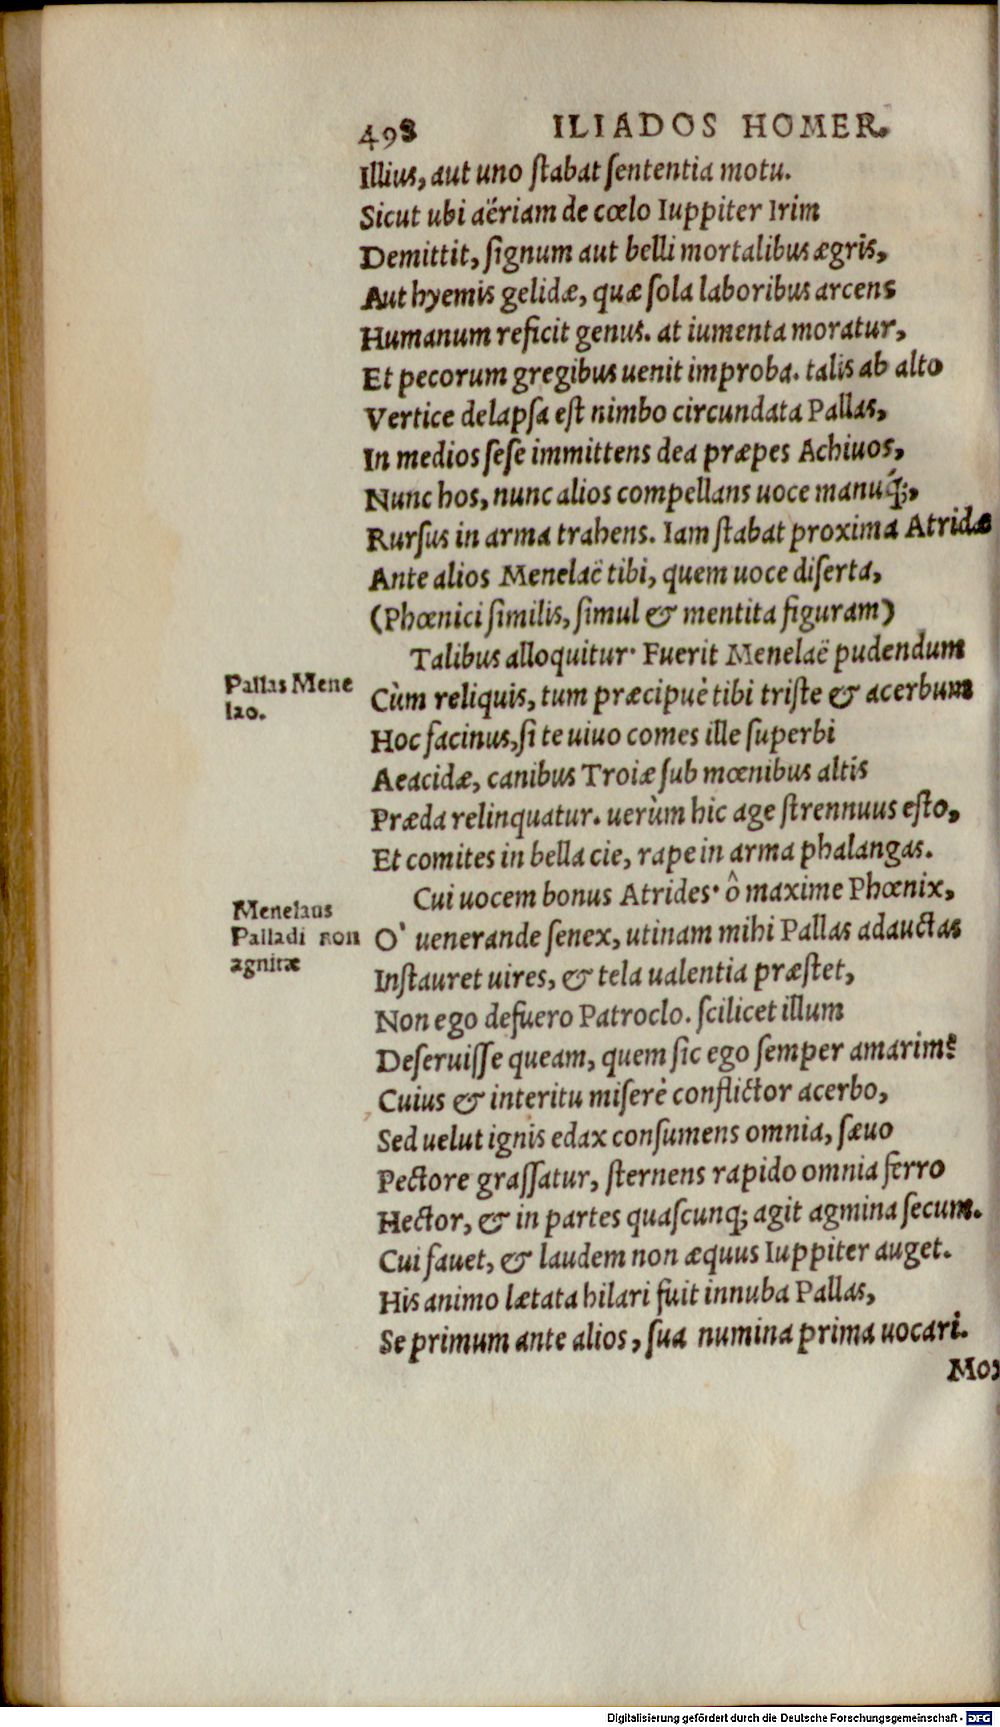 498 ILIADOS HOMER.
Illius, aut uno ſtabat ſententia motu.
Sicut ubi aëriam de cœlo Iuppiter Irim
Demittit, ſignum aut belli mortalibus ægris,
Aut hyemis gelidæ, quæ ſola laboribus arcens
Humanum reficit genus. at iumenta moratur,
Et pecorum gregibus uenit improba. talis ab alto
Vertice delapſa eſt nimbo circundata Pallas,
In medios ſeſe immittens dea præpes Achiuos,
Nunc hos, nunc alios compellans uoce manuq́;,
Rurſus in arma trahens. Iam ſtabat proxima Atridæ
Ante alios Menelaë tibi, quem uoce diſerta,
(Phœnici ſimilis, ſimul & mentita figuram)
Talibus alloquitur· Fuerit Menelaë pudendum
Pallas Mene
lao.
Cùm reliquis, tum præcipuè tibi triſte & acerbum
Hoc facinus, ſi te uiuo comes ille ſuperbi
Aeacidæ, canibus Troiæ ſub mœnibus altis
Præda relinquatur. uerùm hic age ſtrennuus eſto,
Et comites in bella cie, rape in arma phalangas.
Cui uocem bonus Atrides· ô maxime Phœnix,
Menelaus
Palladi non
agnitæ
O' uenerande ſenex, utinam mihi Pallas adauctas
Inſtauret uires, & tela ualentia præſtet,
Non ego defuero Patroclo. ſcilicet illum
Deſeruiſſe queam, quem ſic ego ſemper amarim?
Cuius & interitu miſerè conflictor acerbo,
Sed uelut ignis edax conſumens omnia, ſæuo
Pectore graſſatur, ſternens rapido omnia ferro
Hector, & in partes quaſcunq; agit agmina ſecum.
Cui fauet, & laudem non æquus Iuppiter auget.
His animo lætata hilari fuit innuba Pallas,
Se primum ante alios, ſua numina prima uocari.
Mox
Digitalisierung gefördert durch die Deutsche Forschungsgemeinschaft - DFG